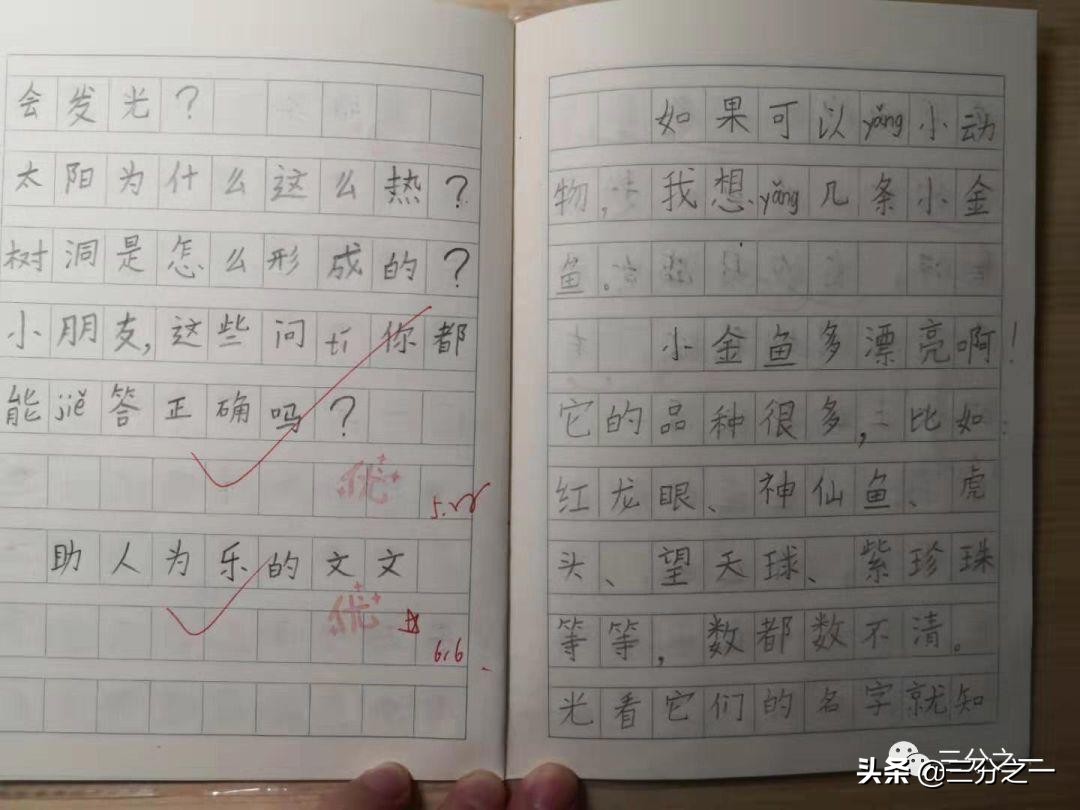 会发光？
太阳为什么这么热？
树洞是怎么形成的？
小朋友，这些问tí你都
能jiě答正确吗？
优
5.22
助人为乐的文文
优
6.9
如果可以yǎng小动
物，我想yǎng几条小金
鱼。
小金鱼多漂亮啊！
它的品种很多，比如：
红龙眼、神仙鱼、虎
头、望天球、紫珍珠
等等，数都数不清。
光看它们的名字就知
三分之一
头条@三分之一